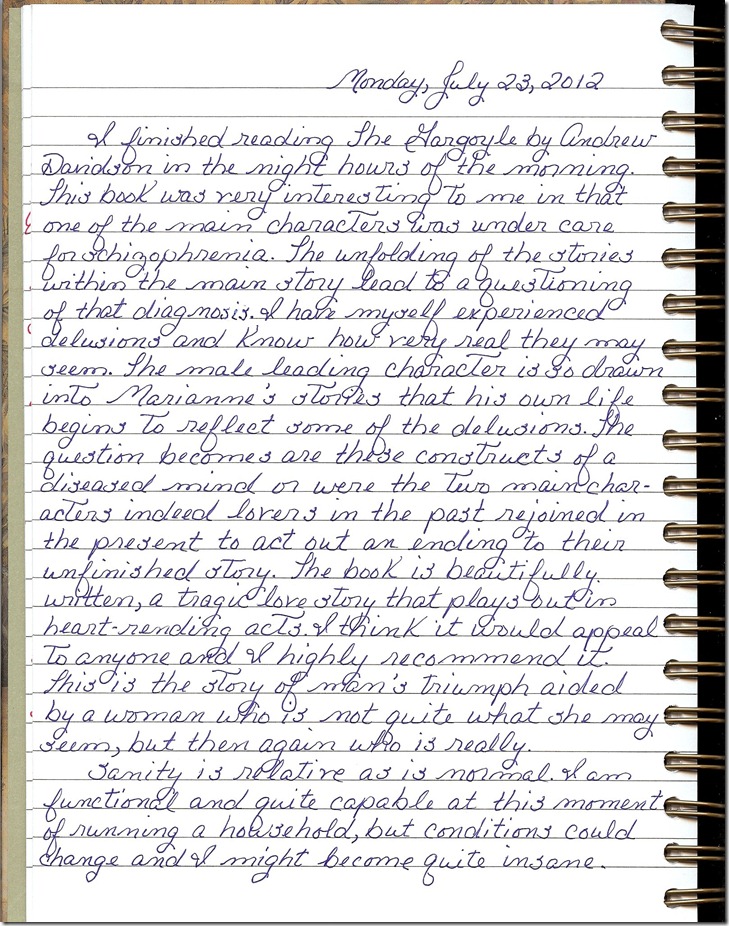 Monday, July 23, 2012
I finished reading The Gargoyle by Andrew
Davidson in the night hours of the morning.
This book was very interesting to me in that
one of the main characters was under care
for schizophrenia. The unfolding of the stories
within the main story lead to a questioning
of that diagnosis. I have myself experienced
delusions and know how very real they may
seem. The male leading character is so drawn
into Marianne's stories that his own life
begins to reflect some of the delusions. The
question becomes are these constructs of a
diseased mind or were the two main char-
acters indeed lovers in the past rejoined in
the present to act out an ending to their
unfinished story. The book is beautifully
written, a tragic love story that plays out in
heart-rending acts. I think it would appeal
to anyone and I highly recommend it.
This is the story of man's triumph aided
by a woman who is not quite what she may
seem, but then again who is really.
Sanity is relative as is normal. I am
functional and quite capable at this moment
of running a household, but conditions could
change and I might become quite insane.